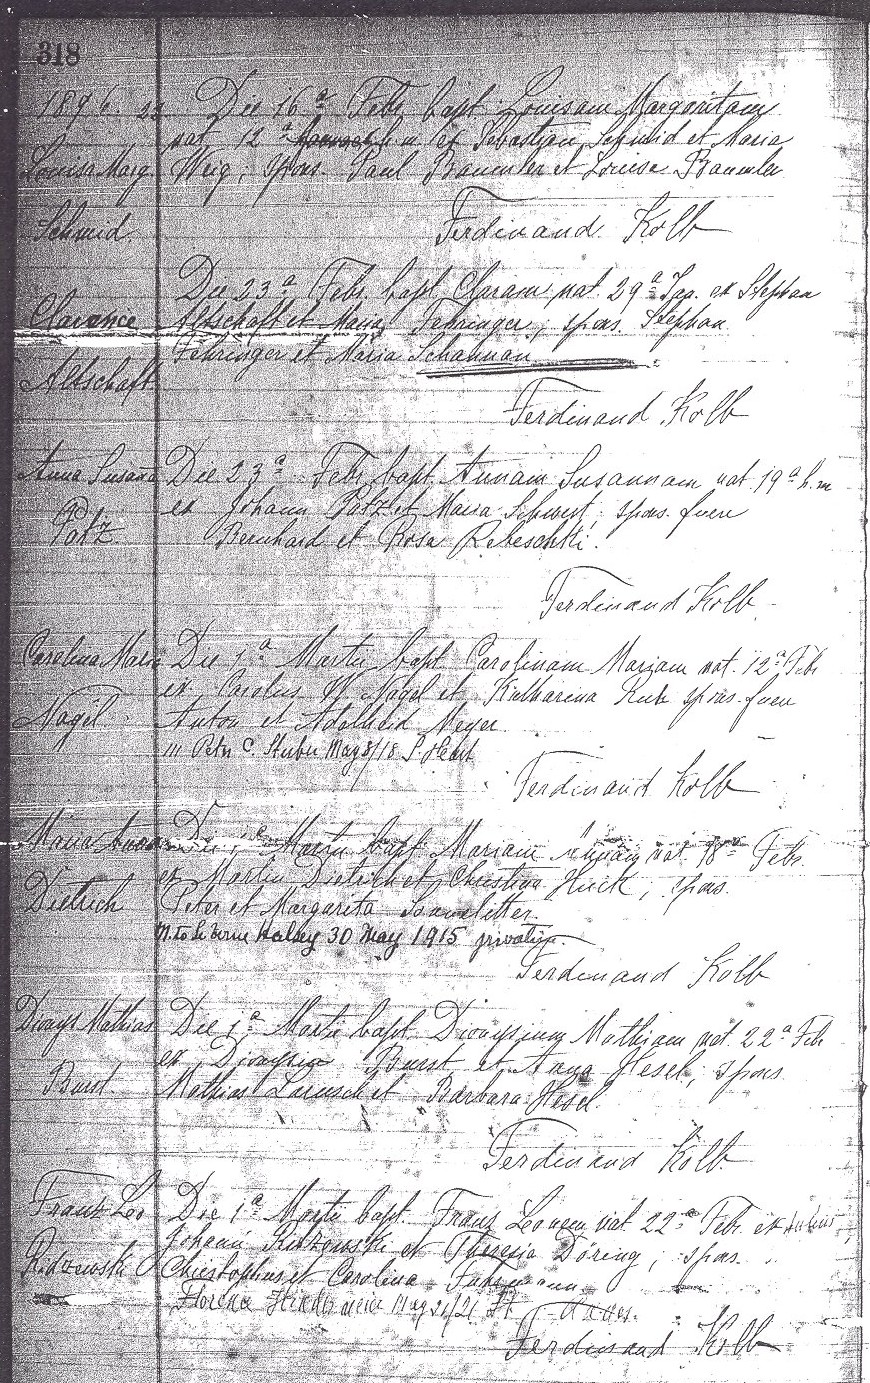 318
1896. 23 Die 16ª Febr. bapt. Louisam Margaritam
nat 12ª h. m. ex Sebastian Schmid et Maria
Louisa Marg. Weig; spons. Paul Baumler et Louise Baumler
Schmid. Ferdinand Kolb
Die 23ª Febr. bapt. Claram nat. 29ª Jan. ex Stephan
Clarence Altschaft et Maria Fehringer; spons. Stephan
Fehringer et Maria Schannan
Altschaft
Ferdinand Kolb
Anna Susana Die 23ª Febr. bapt. Annam Susannam nat. 19ª h. m
ex Johann Patz et Maria Schwert spons. fuere
Patz Bernhard et Rosa Rebeschki.
Ferdinand Kolb.
Carolina Maria Die 1ª Martii bapt. Carolinam Mariam nat. 12ª Febr
ex Carolus Nagel et Katharina spons. fuere
Nagel Anton et Adelheid Meyer
m Petr C. Stuber May 8/18 S. Heart
Ferdinand Kolb
Maria Anna Die 1ª Martii bapt. Mariam Annam nat. 18ª Febr.
ex Martin Dietrich et Christina Huck, spons.
Dietrich Peter et Margarita
M. to Le Verne Halsey 30 May 1915
Ferdinand Kolb
Dionys Mathias Die 1ª Martii bapt. Dionysium Mathiam nat. 22ª Febr
ex Dionysio Burst et Anna Hesel, spons.
Burst Mathias et Barbara Hesel.
Ferdinand Kolb
Franz Leo Die 1ª Martii bapt. Franz Leonem nat 22ª Febr. ex
Johann et Theresia Döring; spons.
Christophus et Carolina
Florence May 21/21 St
Ferdinand Kolb